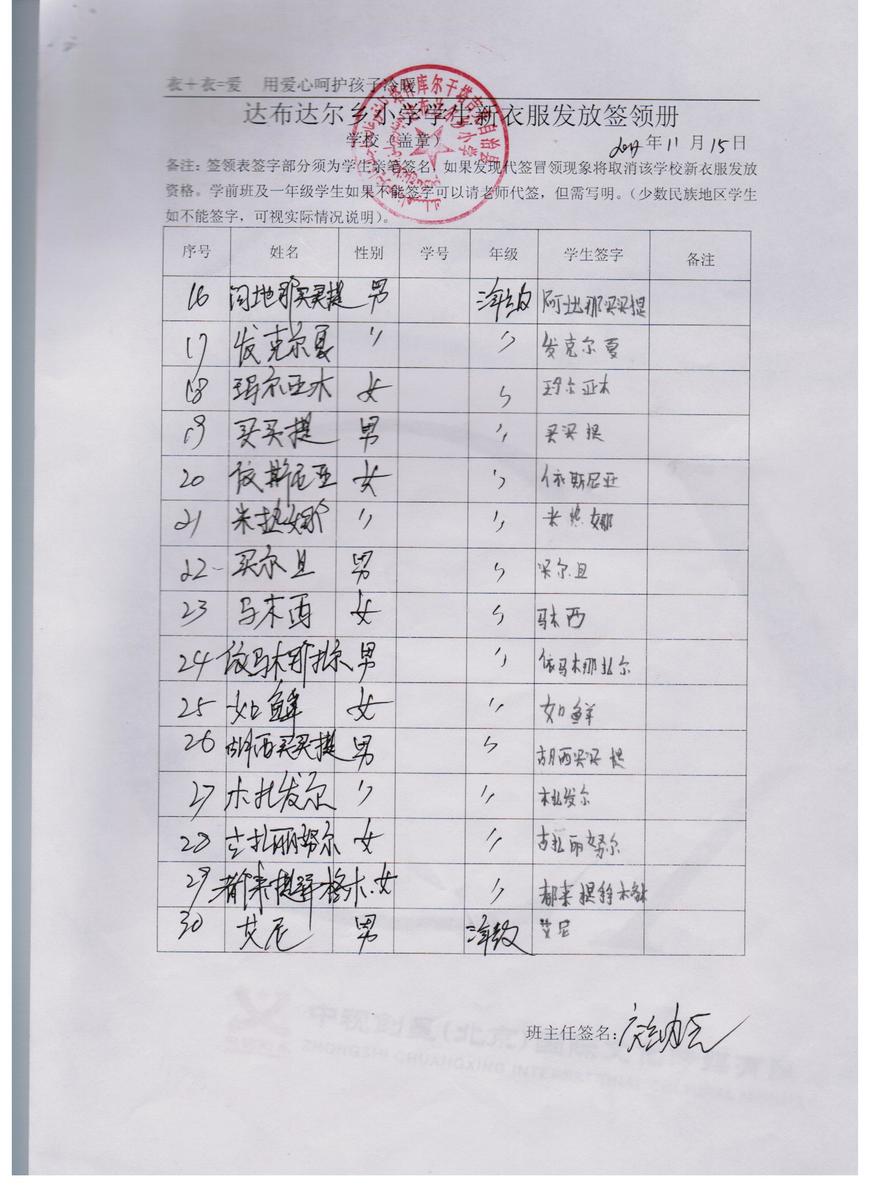 衣+衣=爱 用爱心呵护孩子冷暖
达布达尔乡小学学生新衣服发放签领册
学校(盖章) 年 11 月 15 日
备注:签领表签字部分须为学生亲笔签名,如果发现代签冒领现象将取消该学校新衣服发放
资格。学前班及一年级学生如果不能签字可以请老师代签,但需写明。(少数民族地区学生
如不能签字,可视实际情况说明)。
序号 姓名 性别 学号 年级 学生签字 备注
16 地那买买提 男 年级 阿地那买买提
17 发克尔夏 〃 〃 发克尔夏
18 玛尔亚木 女 〃 玛尔亚木
19 买买提 男 〃 买买提
20 依斯尼亚 女 〃 依斯尼亚
21 米热娜 〃 〃 米热娜
22 买尔且 男 〃 买尔且
23 马木西 女 〃 马木西
24 依马木那扎尔 男 〃 依马木那扎尔
25 如鲜 女 〃 如鲜
26 胡西买买提 男 〃 胡西买买提
27 木扎发尔 〃 〃 木扎发尔
28 古扎丽努尔 女 〃 古扎丽努尔
29 都来提 女 〃 都来提
30 艾尼 男 年级 艾尼
班主任签名:
中视创星(北京)国际文化传媒有限
ZHONGSHI CHUANGXING INTERNATIONAL